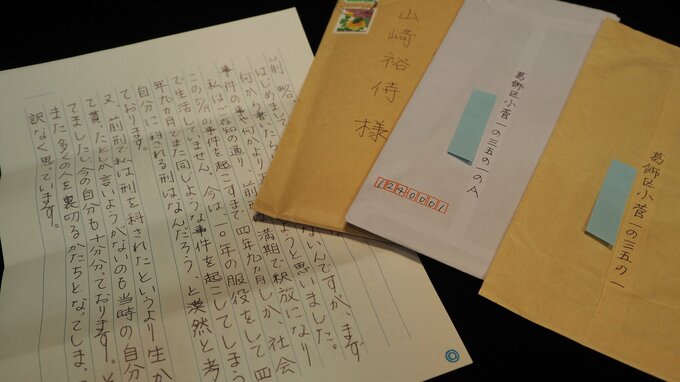 前略
はじめまして
何から書いたら ないんですが、まず
事件の事や何かより ようと思いました。
私はご存知の通り、前刑 満期で釈放になり
この5/9の事件を起こすまで四年九カ月しか、社会
で生活していません。今は、一〇年の服役をして四
年九カ月でまた同じような事件を起こしてしまう
自分に科される刑はなんだろう、と漠然と考
ております。
又、前刑で私は刑を科されたというより生か
て貰ったとしか言いようがないのも当時の自分
てましたし、今の自分も十分分っております。そ
また多くの人を裏切るかたちとなってしま
訳なく思っています。
山﨑裕侍様
葛飾区小菅一の三五の一のA
1240001
葛飾区小菅一の三五の一